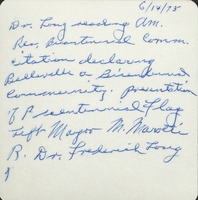 6/14/75
Dr. Long reading Am.
Rev. Bicentennial Comm.
citation declaring
Belleville a Bicentennial
Community. Presentation
of Bicentennial Flag
Left Mayor M.
R. Dr. Frederick Long